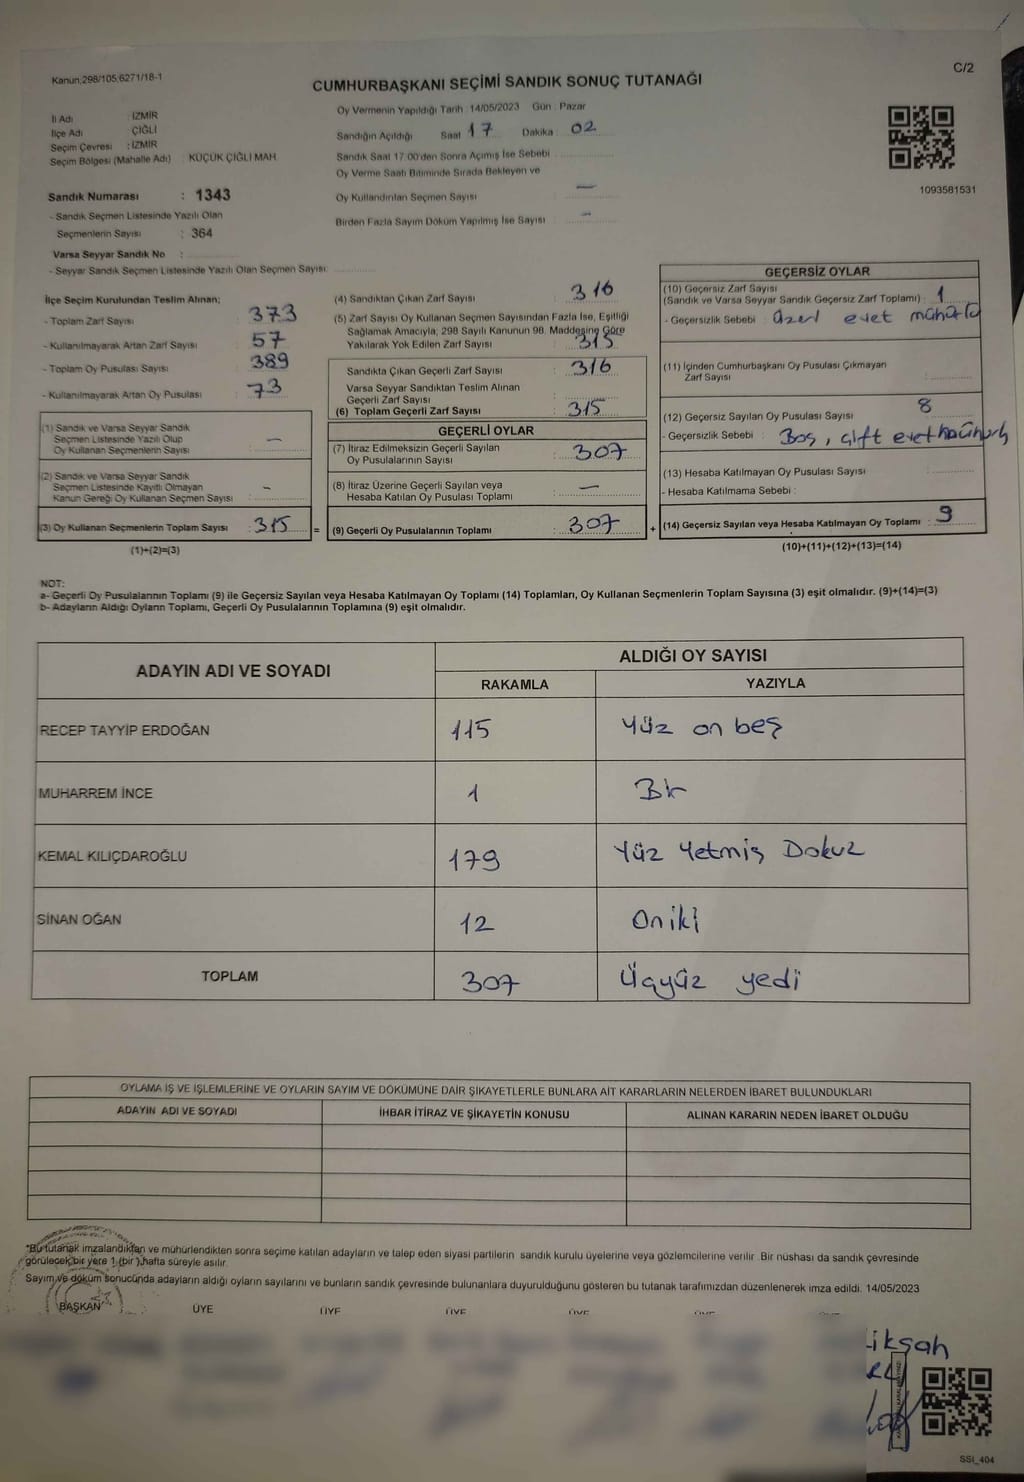 Kanun;298/105;6271/18-1
C/2
CUMHURBAŞKANI SEÇİMİ SANDIK SONUÇ TUTANAĞI
İl Adı : İZMİR
İlçe Adı : ÇİĞLİ
Seçim Çevresi : İZMİR
Seçim Bölgesi (Mahalle Adı) : KÜÇÜK ÇİĞLİ MAH.
Oy Vermenin Yapıldığı Tarih : 14/05/2023 Gün : Pazar
Sandığın Açıldığı Saat 17 Dakika : 02
Sandık Saat 17:00'den Sonra Açımış İse Sebebi :
Oy Verme Saati Bitiminde Sırada Bekleyen ve
Oy Kullandırılan Seçmen Sayısı : —
Birden Fazla Sayım Döküm Yapılmış İse Sayısı : -
1093581531
Sandık Numarası : 1343
- Sandık Seçmen Listesinde Yazılı Olan
Seçmenlerin Sayısı : 364
Varsa Seyyar Sandık No :
- Seyyar Sandık Seçmen Listesinde Yazılı Olan Seçmen Sayısı:
İlçe Seçim Kurulundan Teslim Alınan;
- Toplam Zarf Sayısı : 373
- Kullanılmayarak Artan Zarf Sayısı : 57
- Toplam Oy Pusulası Sayısı : 389
- Kullanılmayarak Artan Oy Pusulası : 73
(1) Sandık ve Varsa Seyyar Sandık
Seçmen Listesinde Yazılı Olup
Oy Kullanan Seçmenlerin Sayısı : —
(2) Sandık ve Varsa Seyyar Sandık
Seçmen Listesinde Kayıtlı Olmayan
Kanun Gereği Oy Kullanan Seçmen Sayısı : -
(3) Oy Kullanan Seçmenlerin Toplam Sayısı : 315 =
(1)+(2)=(3)
(4) Sandıktan Çıkan Zarf Sayısı : 316
(5) Zarf Sayısı Oy Kullanan Seçmen Sayısından Fazla İse, Eşitliği
Sağlamak Amacıyla, 298 Sayılı Kanunun 98. Maddesine Göre
Yakılarak Yok Edilen Zarf Sayısı : 315
Sandıkta Çıkan Geçerli Zarf Sayısı : 316
Varsa Seyyar Sandıktan Teslim Alınan
Geçerli Zarf Sayısı :
(6) Toplam Geçerli Zarf Sayısı : 315
GEÇERLİ OYLAR
(7) İtiraz Edilmeksizin Geçerli Sayılan
Oy Pusulalarının Sayısı : 307
(8) İtiraz Üzerine Geçerli Sayılan veya
Hesaba Katılan Oy Pusulası Toplamı : —
(9) Geçerli Oy Pusulalarının Toplamı : 307 +
GEÇERSİZ OYLAR
(10) Geçersiz Zarf Sayısı
(Sandık ve Varsa Seyyar Sandık Geçersiz Zarf Toplamı) : 1
- Geçersizlik Sebebi : evet
(11) İçinden Cumhurbaşkanı Oy Pusulası Çıkmayan
Zarf Sayısı :
(12) Geçersiz Sayılan Oy Pusulası Sayısı : 8
- Geçersizlik Sebebi : Boş, çift evet
(13) Hesaba Katılmayan Oy Pusulası Sayısı :
- Hesaba Katılmama Sebebi :
(14) Geçersiz Sayılan veya Hesaba Katılmayan Oy Toplamı : 9
(10)+(11)+(12)+(13)=(14)
NOT:
a- Geçerli Oy Pusulalarının Toplamı (9) ile Geçersiz Sayılan veya Hesaba Katılmayan Oy Toplamı (14) Toplamları, Oy Kullanan Seçmenlerin Toplam Sayısına (3) eşit olmalıdır. (9)+(14)=(3)
b- Adayların Aldığı Oyların Toplamı, Geçerli Oy Pusulalarının Toplamına (9) eşit olmalıdır.
ADAYIN ADI VE SOYADI
ALDIĞI OY SAYISI
RAKAMLA YAZIYLA
RECEP TAYYİP ERDOĞAN 115 Yüz on beş
MUHARREM İNCE 1 Bir
KEMAL KILIÇDAROĞLU 179 Yüz Yetmiş Dokuz
SİNAN OĞAN 12 Oniki
TOPLAM 307 Üçyüz yedi
OYLAMA İŞ VE İŞLEMLERİNE VE OYLARIN SAYIM VE DÖKÜMÜNE DAİR ŞİKAYETLERLE BUNLARA AİT KARARLARIN NELERDEN İBARET BULUNDUKLARI
ADAYIN ADI VE SOYADI İHBAR İTİRAZ VE ŞİKAYETİN KONUSU ALINAN KARARIN NEDEN İBARET OLDUĞU
*Bu tutanak imzalandıktan ve mühürlendikten sonra seçime katılan adayların ve talep eden siyasi partilerin sandık kurulu üyelerine veya gözlemcilerine verilir. Bir nüshası da sandık çevresinde
görülecek bir yere 1 (bir ) hafta süreyle asılır.
Sayım ve döküm sonucunda adayların aldığı oyların sayılarını ve bunların sandık çevresinde bulunanlara duyurulduğunu gösteren bu tutanak tarafımızdan düzenlenerek imza edildi. 14/05/2023
BAŞKAN ÜYE ÜYE ÜYE ÜYE ÜYE ÜYE
SSİ_404